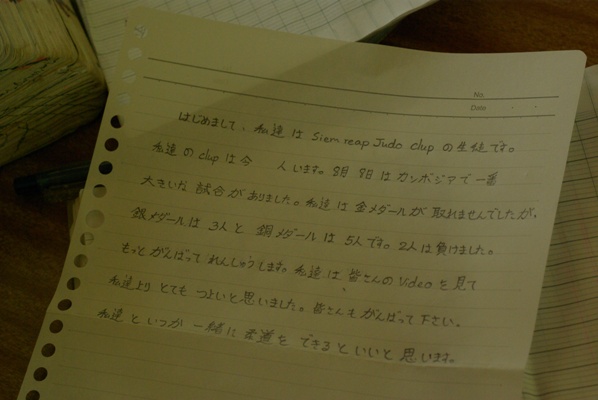 No.
Date
はじめまして、私達は Siem reap Judo clup の生徒です。
私達の clup は今 人います。8月 8日 はカンボジアで一番
大きいな 試合がありました。私達は 金メダールが 取れませんでしたが、
銀メダールは 3人と 銅メダールは 5人です。2人は負けました。
もっとがんばって れんしゅうします。私達は、皆さんの Video を見て
私達より とても つよいと思いました。皆さんも がんばって 下さい。
私達と いつか 一緒に 柔道を できるといいと 思います。